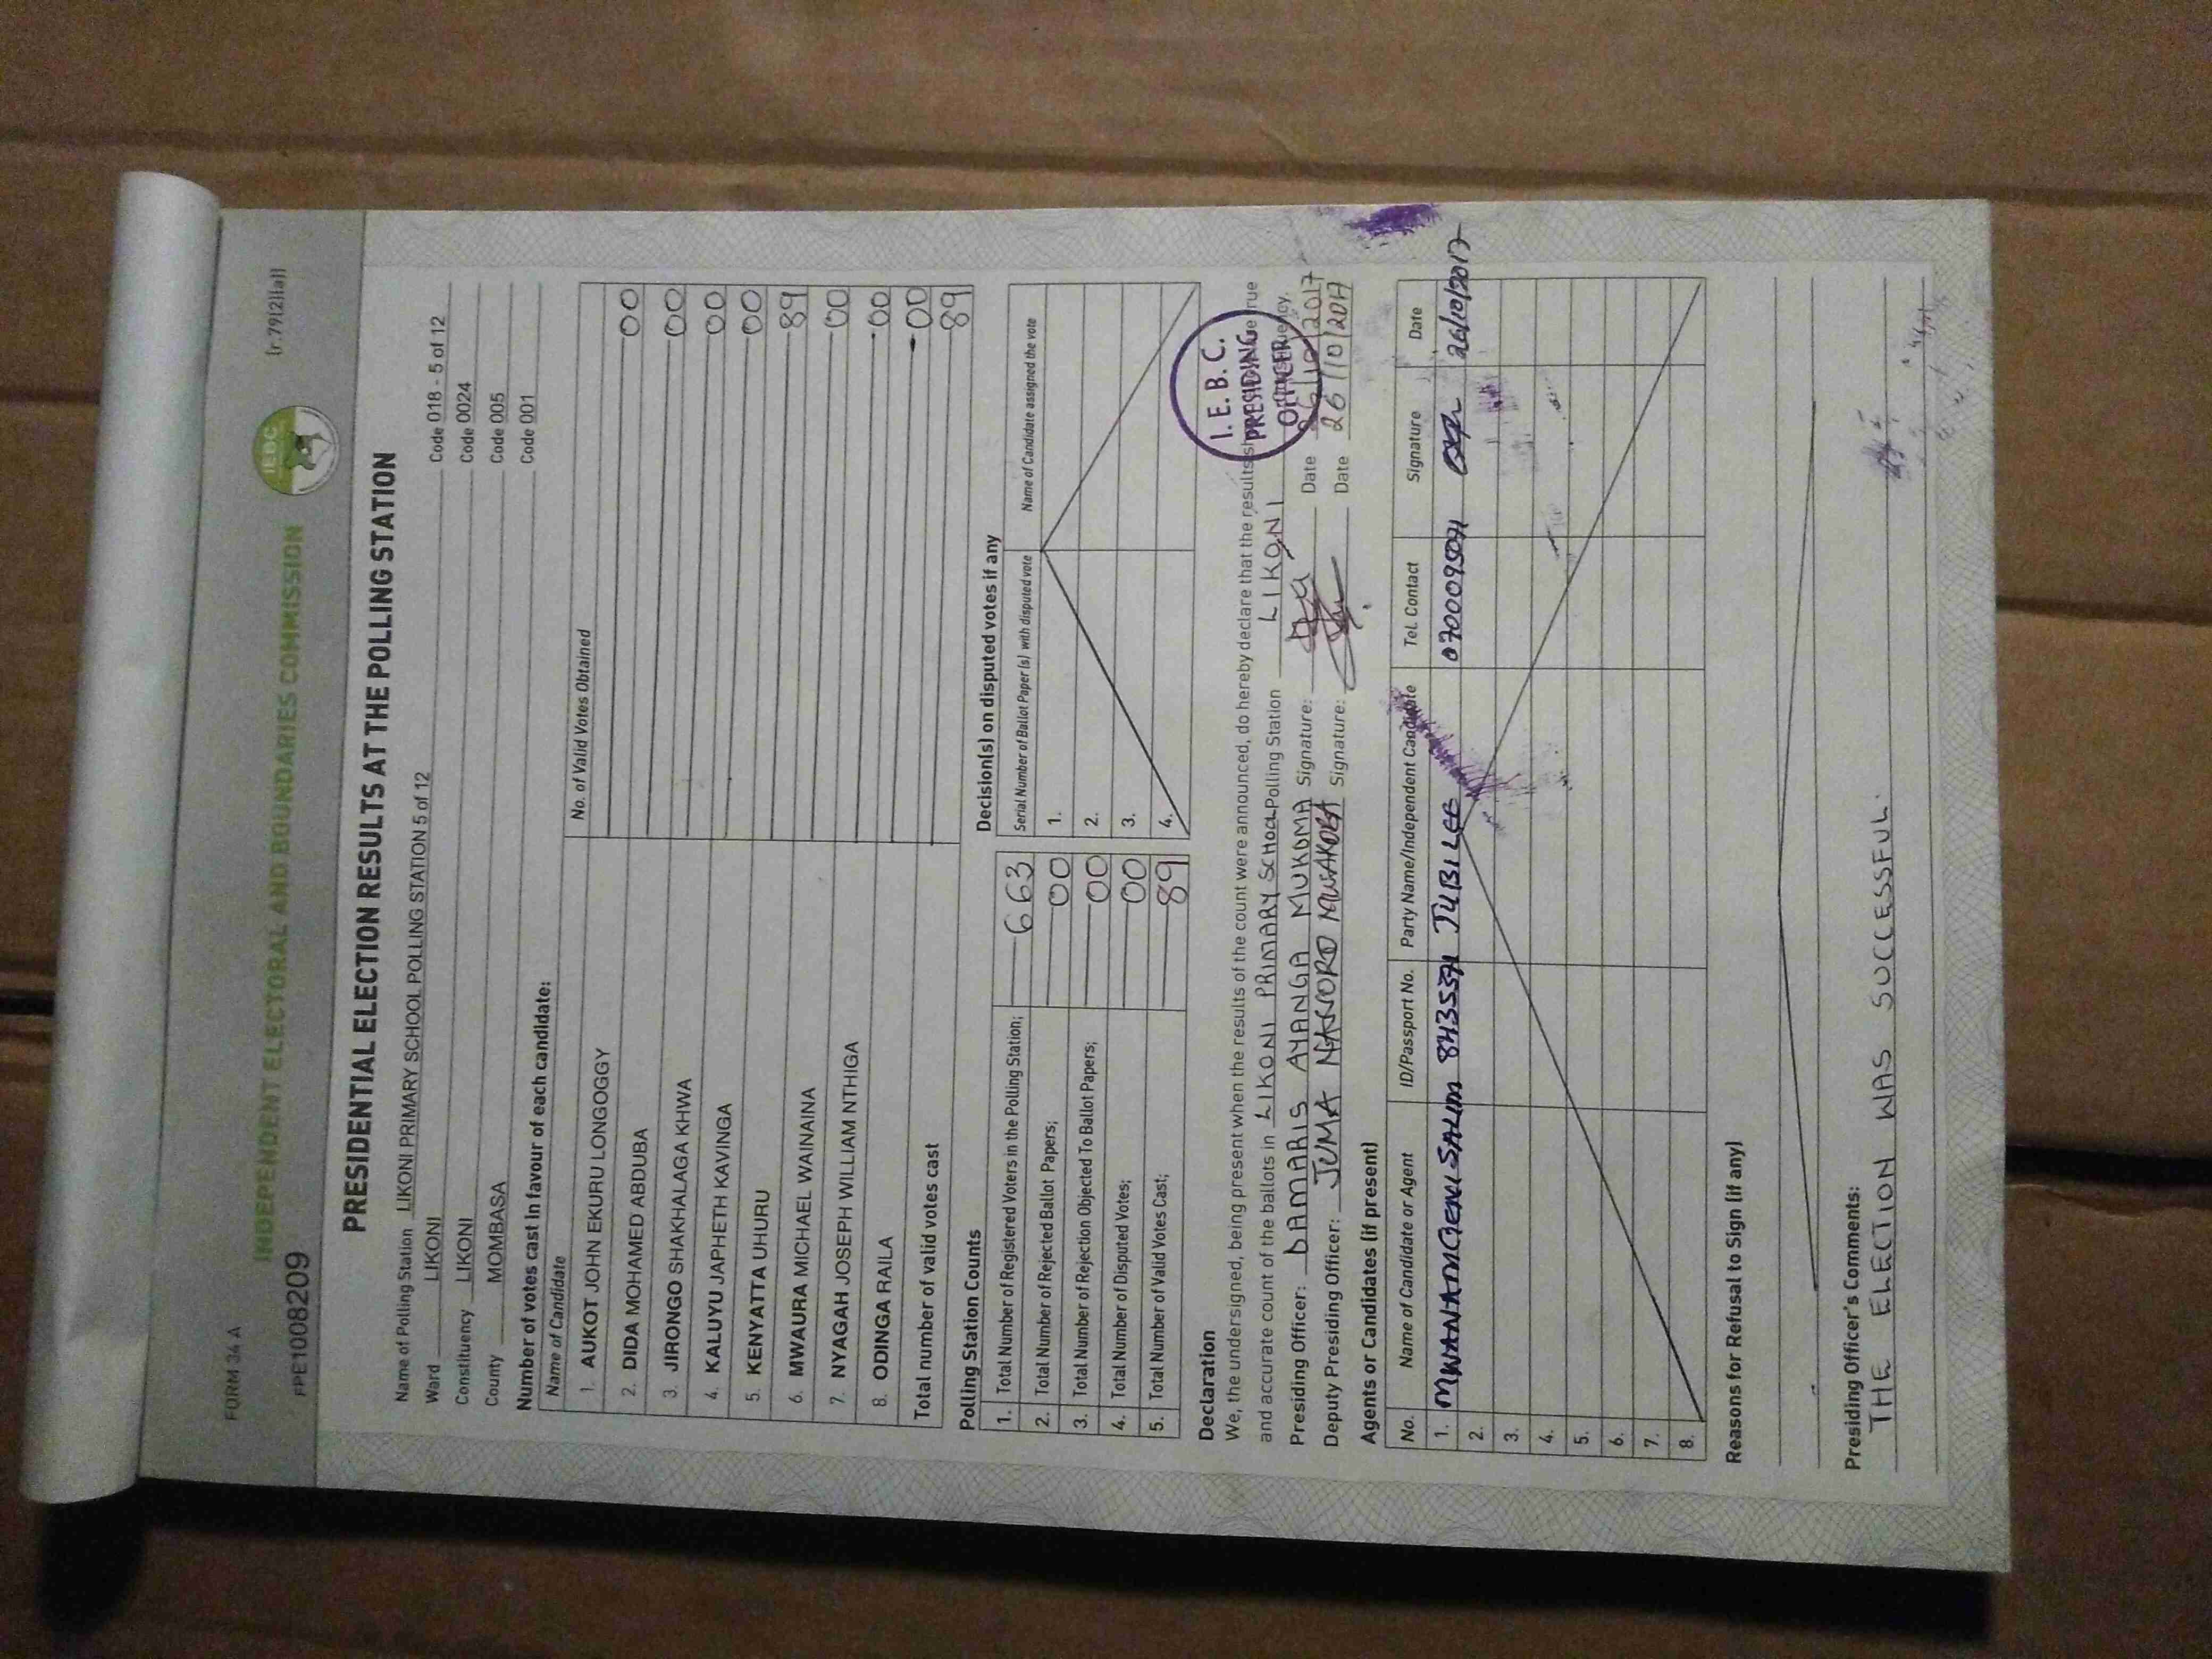 FORM 34 A
(r.79(2)(a))
FPE1008209
INDEPENDENT ELECTORAL AND BOUNDARIES COMMISSION
IEBC
PRESIDENTIAL ELECTION RESULTS AT THE POLLING STATION
Name of Polling Station LIKONI PRIMARY SCHOOL POLLING STATION 5 of 12 Code 018 - 5 of 12
Ward LIKONI Code 0024
Constituency LIKONI Code 005
County MOMBASA Code 001
Number of votes cast in favour of each candidate:
Name of Candidate No. of Valid Votes Obtained
1. AUKOT JOHN EKURU LONGOGGY 00
2. DIDA MOHAMED ABDUBA 00
3. JIRONGO SHAKHALAGA KHWA 00
4. KALUYU JAPHETH KAVINGA 00
5. KENYATTA UHURU 89
6. MWAURA MICHAEL WAINAINA 00
7. NYAGAH JOSEPH WILLIAM NTHIGA 00
8. ODINGA RAILA 00
Total number of valid votes cast 89
Polling Station Counts
1. Total Number of Registered Voters in the Polling Station; 663
2. Total Number of Rejected Ballot Papers; 00
3. Total Number of Rejection Objected To Ballot Papers; 00
4. Total Number of Disputed Votes; 00
5. Total Number of Valid Votes Cast; 89
Decision(s) on disputed votes if any
Serial Number of Ballot Paper (s) with disputed vote Name of Candidate assigned the vote
1.
2.
3.
4.
Declaration
We, the undersigned, being present when the results of the count were announced, do hereby declare that the results true
and accurate count of the ballots in LIKONI PRIMARY SCHOOL Polling Station LIKONI
I.E.B.C.
PRESIDING
OFFICER
Presiding Officer: DAMARIS AYANGA MUKOMA Signature: Date 26/10/2017
Deputy Presiding Officer: JUMA NASSORO Signature: Date 26/10/2017
Agents or Candidates (if present)
No. Name of Candidate or Agent ID/Passport No. Party Name/Independent Candidate Tel. Contact Signature Date
1. SALIM JUBILEE 26/10/2017
2.
3.
4.
5.
6.
7.
8.
Reasons for Refusal to Sign (if any)
Presiding Officer's Comments:
THE ELECTION WAS SUCCESSFUL.